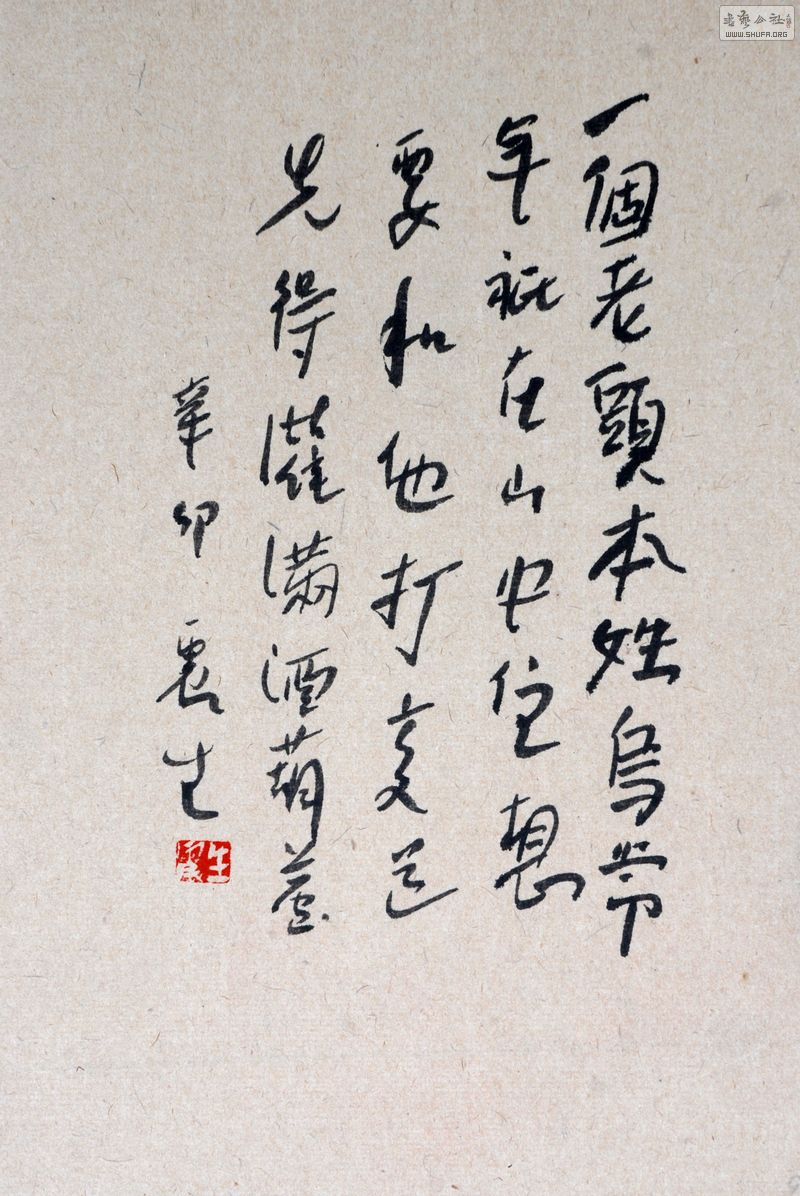 書藝公社
WWW.SHUFA.ORG
一個老頭本姓烏常
年祗在山中住想
要和他打交道
先得灌滿酒葫蘆
辛卯 生